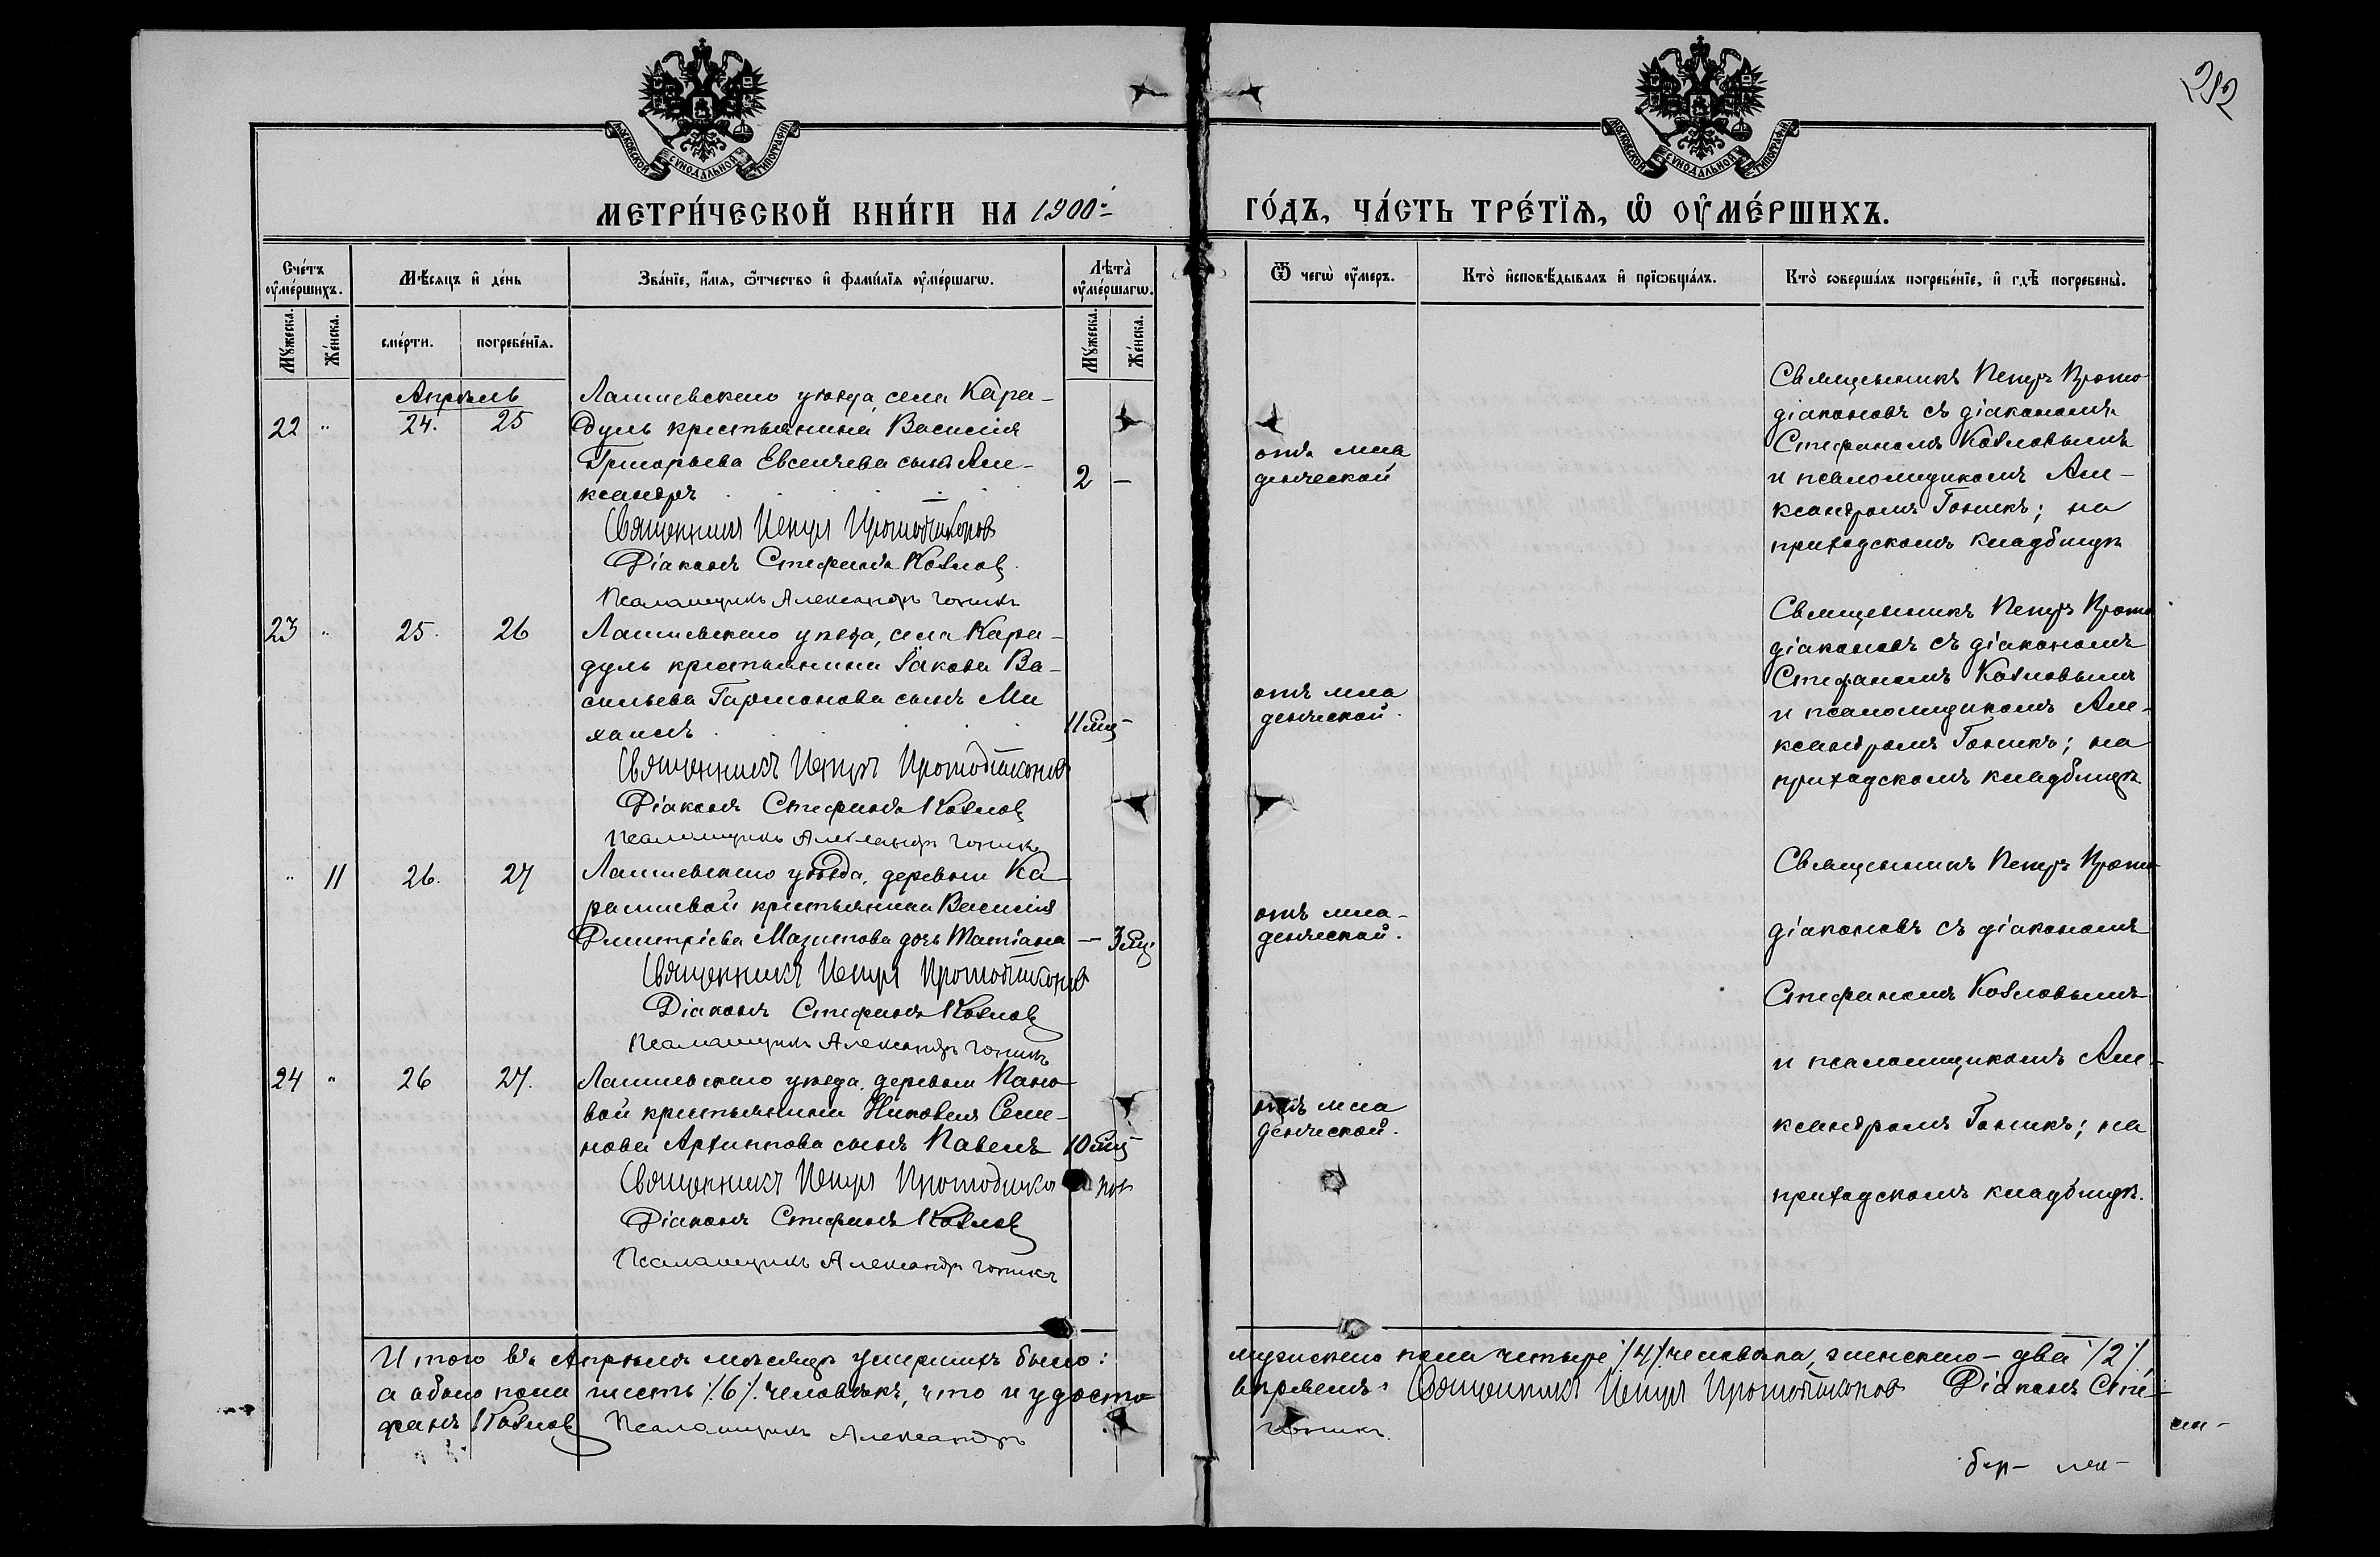 292
МОСКОВСКОЙ СѴНОДАЛЬНОЙ ТИПОГРАФІИ
МОСКОВСКОЙ СѴНОДАЛЬНОЙ ТИПОГРАФІИ
МЕТРИ́ЧЕСКОЙ КНИ́ГИ НА 1900й
ГО́ДЪ, ЧА́СТЬ ТРЕ́ТЇѦ, Ѡ҆ ОУ҆МЕ́РШИХЪ.
Сче́тъ оу҆ме́ршихъ.
Мѣ́сяцъ и҆ де́нь
Зва́нїе, и҆́мѧ, ѻ҆́тчество и҆ фами́лїѧ оу҆ме́ршагѡ.
Лѣта̀ оу҆ме́ршагѡ.
Ѿ чегѡ̀ оу҆́меръ.
Кто̀ и҆сповѣ́дывалъ и҆ прїѡбща́лъ.
Кто̀ соверша́лъ погребе́нїе, и҆ гдѣ̀ погребены̀.
Му́жеска.
Же́нска.
сме́рти.
погребе́нїѧ.
Му́жеска.
Же́нска.
Апрѣль
22 " 24. 25
Лаишевскаго уѣзда, села Кара-
дуль крестьянина Василія
Григорьева Евсеичева сынъ Але-
ксандръ 2 —
Священникъ Петръ Протодіаконов
Діаконъ Стефанъ Козлов
Псаломщикъ Александръ Гоникъ
отъ мла
денческой
Священникъ Петръ Прото
діаконовъ съ діакономъ
Стефаномъ Козловымъ
и псаломщикомъ Але-
ксандромъ Гоникъ; на
приходскомъ кладбищѣ
23 " 25. 26
Лаишевскаго уѣзда, села Кара-
дуль крестьянина Іакова Ва-
сильева Гармонова сынъ Ми
хаилъ 11 мц —
Священникъ Петръ Протодіаконов
Діаконъ Стефанъ Козлов
Псаломщикъ Александръ Гоникъ
отъ мла
денческой.
Священникъ Петръ Прото
діаконовъ съ діакономъ
Стефаномъ Козловымъ
и псаломщикомъ Але-
ксандромъ Гоникъ; на
приходскомъ кладбищѣ
" 11 26. 27
Лаишевскаго уѣзда, деревни Ка
рашевой крестьянина Василія
Димитріева Мазитова дочь Татіана — 3 мц.
Священникъ Петръ Протодіаконов
Діаконъ Стефанъ Козлов
Псаломщикъ Александръ Гоникъ
отъ мла-
денческой.
Священникъ Петръ Прото
діаконовъ съ діакономъ
Стефаномъ Козловымъ
и псаломщикомъ Але-
ксандромъ Гоникъ; на
приходскомъ кладбищѣ.
24 " 26 27.
Лаишевскаго уѣзда, деревни Пано-
вой крестьянина Якова Семе-
нова Архиппова сынъ Павелъ 10 мц —
Священникъ Петръ Протодіако нов
Діаконъ Стефанъ Козлов
Псаломщикъ Александръ Гоникъ
отъ мла
денческой.
Итого въ Апрѣлѣ мѣсяцѣ умершихъ было: мужскаго пола четыре /4/ человѣка, женскаго — два /2/
а обоего пола шесть /6/ человѣкъ, что и удосто
вѣряемъ: Священникъ Петръ Протодіаконов Діаконъ Сте-
фанъ Козлов Псаломщикъ Александръ
Гоникъ